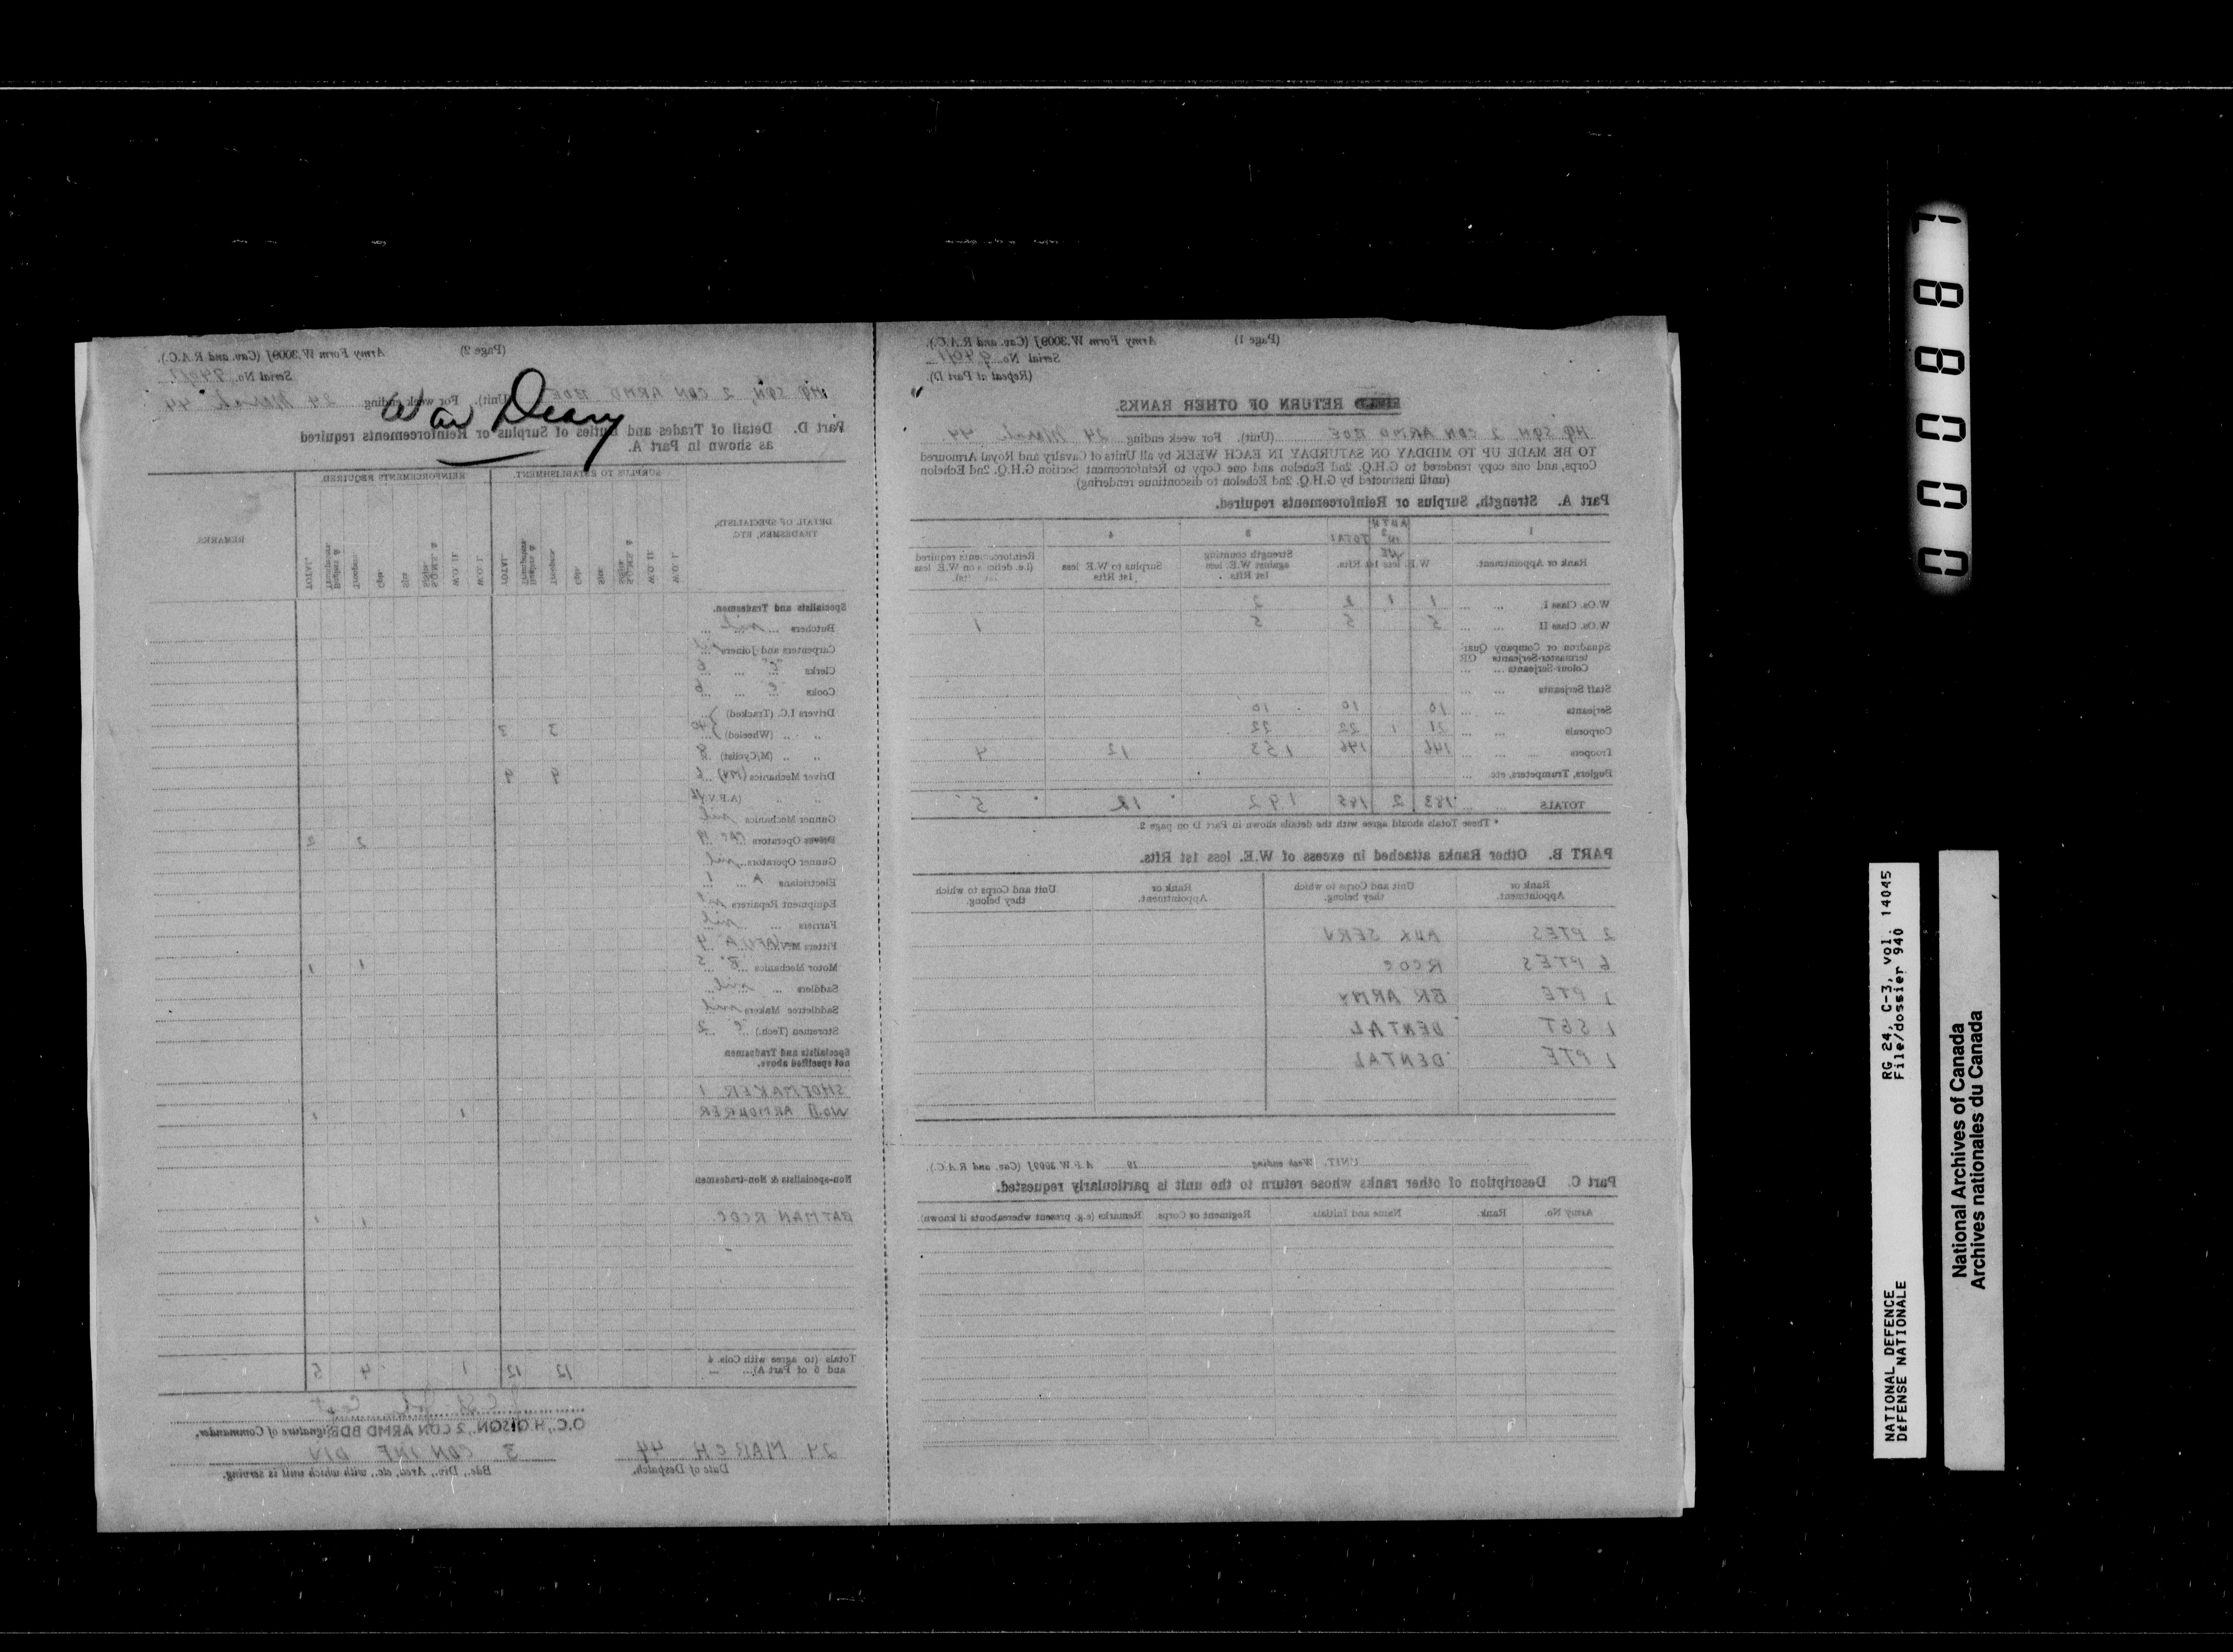 (Page 1) Army Form W.3009J (Cav. and R.A.C.).
Serial No. 940/1
(Repeat at Part D).
RETURN OF OTHER RANKS.
HQ SQN 2 CDN ARMD BDE (Unit). For week ending 24 March 44
TO BE MADE UP TO MIDDAY ON SATURDAY IN EACH WEEK by all Units of Cavalry and Royal Armoured
Corps, and one copy rendered to G.H.Q. 2nd Echelon and one Copy to Reinforcement Section G.H.Q. 2nd Echelon
(until instructed by G.H.Q. 2nd Echelon to discontinue rendering)
Part A. Strength, Surplus or Reinforcements required.
1 3 4
Rank or Appointment. W.E. less 1st Rfts. TOTAL Strength counting against W.E. less 1st Rfts. Surplus to W.E. less 1st Rfts Reinforcements required (i.e. deficit on W.E. less 1st Rfts).
W.Os. Class I. 1 1 2 2
W.Os. Class II 5 5 5 1
Squadron or Company Quar-
termaster-Serjeants OR
Colour-Serjeants
Staff Serjeants
Serjeants 10 10 10
Corporals 21 1 22 22
Troopers 146 146 153 12 4
Buglers, Trumpeters, etc.
TOTALS 183 2 185 192 12 5
* These Totals should agree with the details shown in Part D on page 2.
PART B. Other Ranks attached in excess of W.E. less 1st Rfts.
Rank or Appointment. Unit and Corps to which they belong. Rank or Appointment. Unit and Corps to which they belong.
2 PTES AUX SERV
6 PTES RCOC
1 PTE BR ARMY
1 SGT DENTAL
1 PTE DENTAL
UNIT. Week ending 19 A.F.W. 3009J (Cav. and R.A.C.).
Part C. Description of other ranks whose return to the unit is particularly requested.
Army No. Rank. Name and Initials Regiment or Corps. Remarks (e.g. present whereabouts if known)
(Page 2) Army Form W.3009J (Cav. and R.A.C.).
Serial No. 940/1
HQ SQN, 2 CDN ARMD BDE (Unit). For week ending 24 March 44
War Diary
Part D. Detail of Trades and Duties of Surplus or Reinforcements required
as shown in Part A.
DETAIL OF SPECIALISTS, TRADESMEN, ETC. SURPLUS TO ESTABLISHMENT. REINFORCEMENTS REQUIRED. REMARKS.
W.O. I. W.O. II. Sgts. Cpls. Troopers TOTAL W.O. I. W.O. II. Sgts. Cpls. Troopers TOTAL.
Specialists and Tradesmen.
Butchers nil
Carpenters and Joiners
Clerks "C" 6
Cooks "C" 6
Drivers I.C. (Tracked)
" " (Wheeled) 40 3 3
" " (M/Cyclist) 8
Driver Mechanics (MV) 6 9 9
" " (A.F.V.)
Gunner Mechanics nil
Operators 19 2 2
Gunner Operators nil
Electricians A 1
Equipment Repairers
Farriers nil
Fitters A 4
Motor Mechanics "B" 5 1 1
Saddlers nil
Saddletree Makers nil
Storemen (Tech.) "C" 2
Specialists and Tradesmen
not specified above.
SHOEMAKER 1
WO II ARMOURER 1 1
Non-specialists & Non-tradesmen
BATMAN RCOC. 1 1
Totals (to agree with Cols. 4
and 5 of Part A) 12 12 1 4 5
Capt
O.C., H.Q. SQN., 2 CDN ARMD BDE, Signature of Commander.
24 MARCH 44 3 CDN INF DIV
Date of Despatch. Bde., Div., Area, etc., with which unit is serving.
0000887
NATIONAL DEFENCE RG 24, C-3, vol. 14045
DÉFENSE NATIONALE File/dossier 940
National Archives of Canada
Archives nationales du Canada